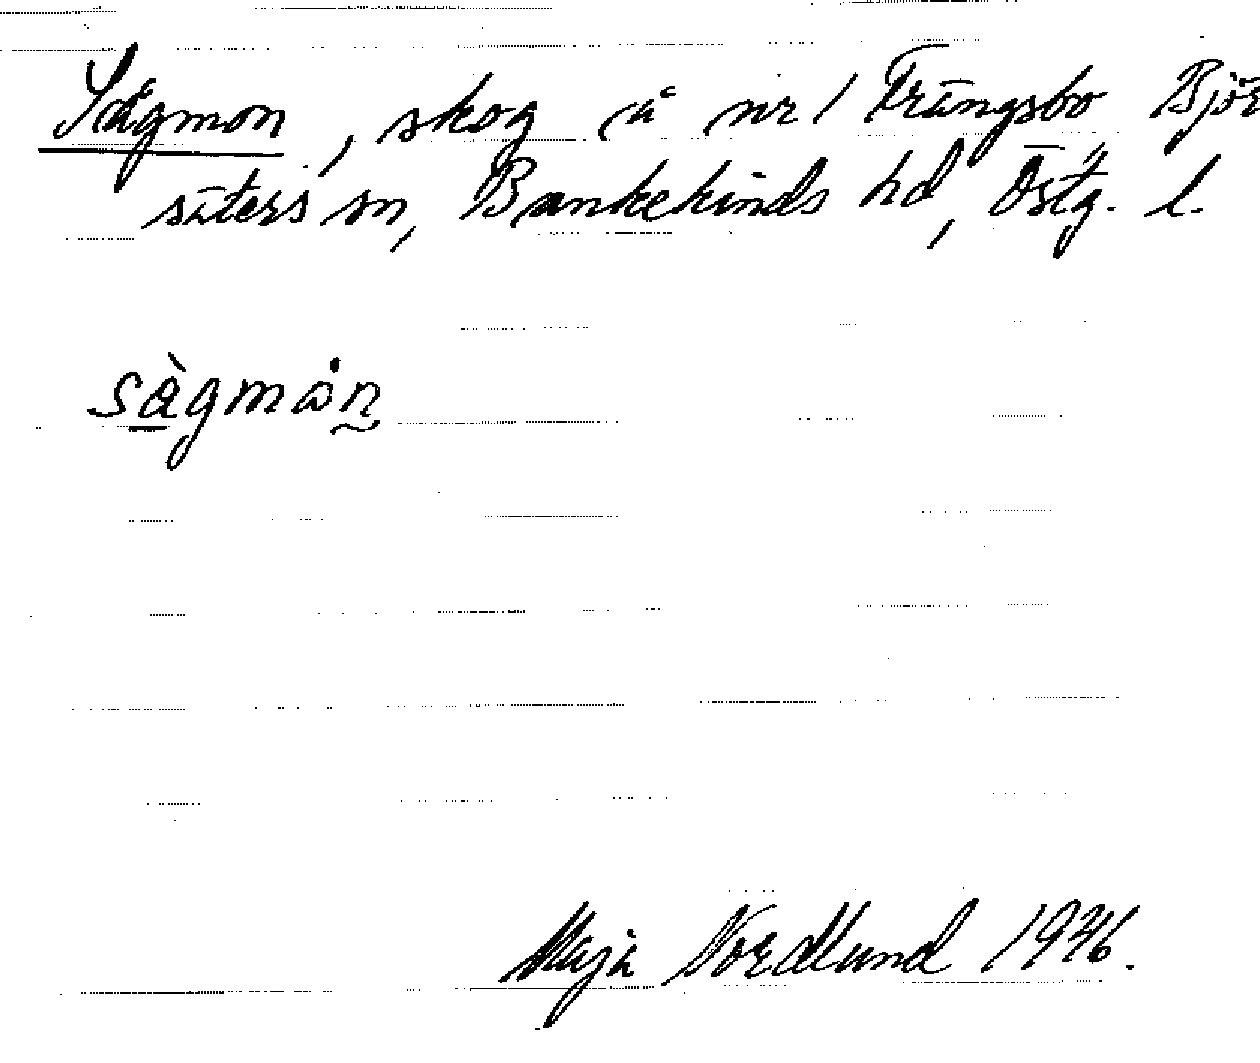 Sågmon, skog å nr 1 Trängsbo Björ
säters sn, Bankekinds hd, Östg. l.
sågmȯn
Maja Nordlund 1946.